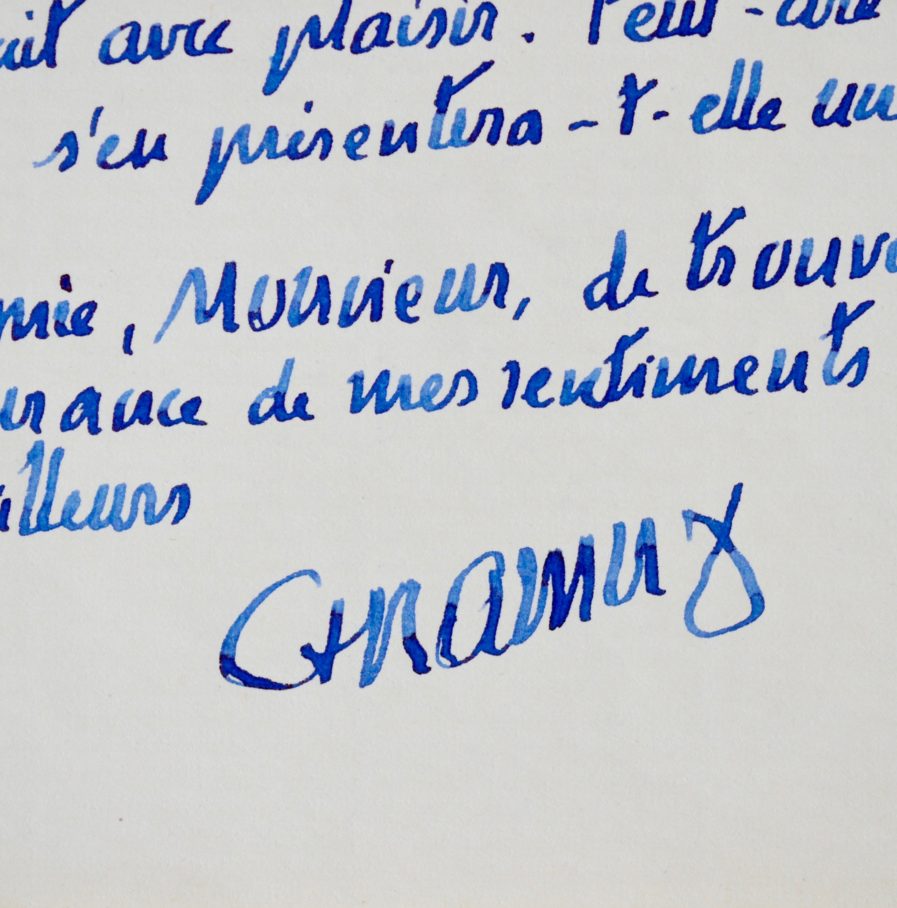 ait avec plaisir. Peut-être
s'en présentera-t-elle un
mie, Monsieur, de trouve
urance de mes sentiments
illeurs
CF Ramuz